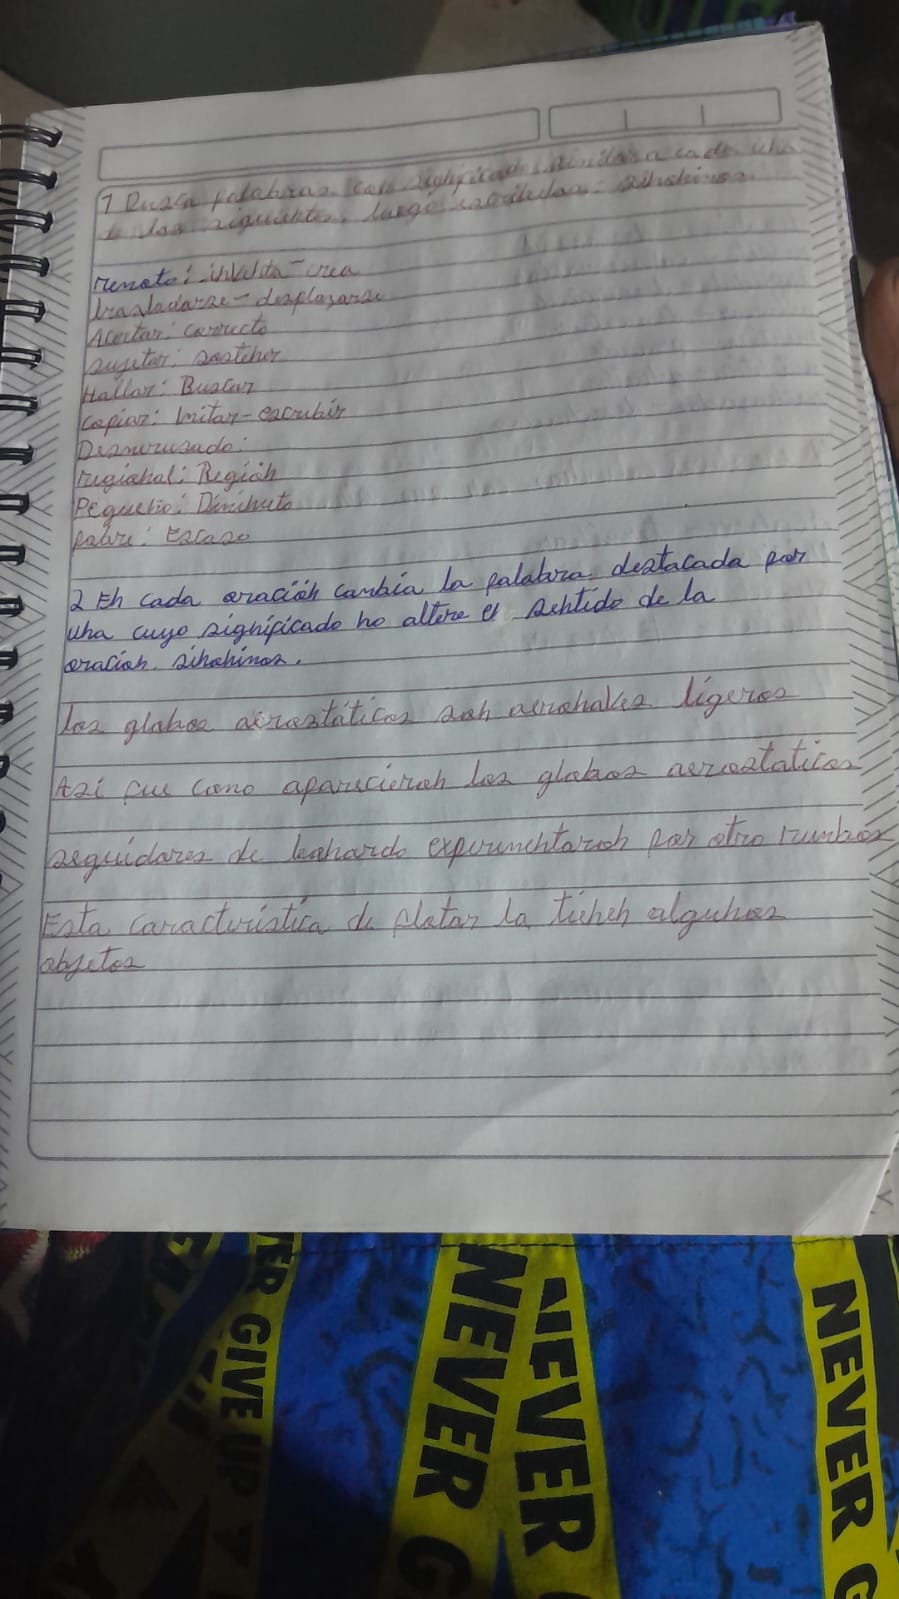 1 Busca palabras con significado similar a cada una
de las siguientes, luego escribelas: sihohinos.
remoto: invento - crea
trasladarse - desplazarse
Acertar: correcto
sujetar: sostener
Hallar: Buscar
copiar: Imitar - escribir
Desmerusado:
regiohal: Regióh
Pequeño: Diminuto
pobre: Escaso
2 Eh cada oracióh cambia la palabra destacada por
uha cuyo significado ho altere el sehtido de la
oracioh. sihohinos.
los globos aerostáticos soh aerohaves ligeros
Así fue como aparecieroh los globos aerostaticos
seguidores de leohardo experimehtaroh por otro rumbos
Esta característica de flotar la tieheh alguhos
objetos
NEVER GIVE UP
NEVER
NEVER G
NEVER G